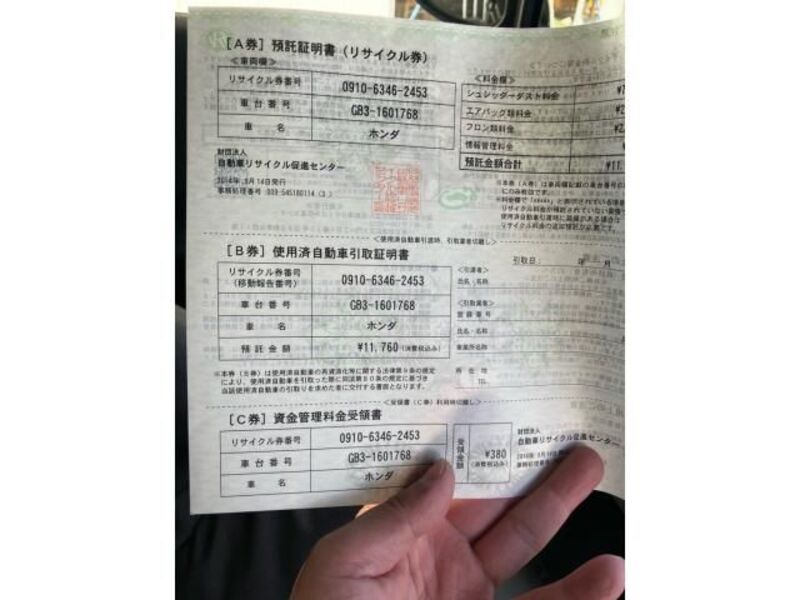 [A券] 預託証明書(リサイクル券)
≪車両欄≫
リサイクル券番号 0910-6346-2453
車台番号 GB3-1601768
車名 ホンダ
≪料金欄≫
シュレッダーダスト料金
エアバッグ類料金
フロン類料金
情報管理料金
預託金額合計 ¥11,
財団法人
自動車リサイクル促進センター
<使用済自動車引渡時、引取業者切離し>
[B券] 使用済自動車引取証明書
引取日: 年 月
リサイクル券番号
(移動報告番号) 0910-6346-2453
車台番号 GB3-1601768
車名 ホンダ
預託金額 ¥11,760(消費税込み)
<引渡者>
氏名・名称
<引取業者>
登録番号
氏名・名称
事業所名称
所在地
TEL
※本券(B券)は使用済自動車の再資源化等に関する法律第9条の規定
により、使用済自動車を引取った際に同法第80条の規定に基づき
当該使用済自動車の引取りを求めた者に交付する書面となります。
<受領書(C券)利用時切離し>
[C券] 資金管理料金受領書
リサイクル券番号 0910-6346-2453
車台番号 GB3-1601768
車名 ホンダ
受領金額 ¥380
(消費税込み)
財団法人
自動車リサイクル促進センター